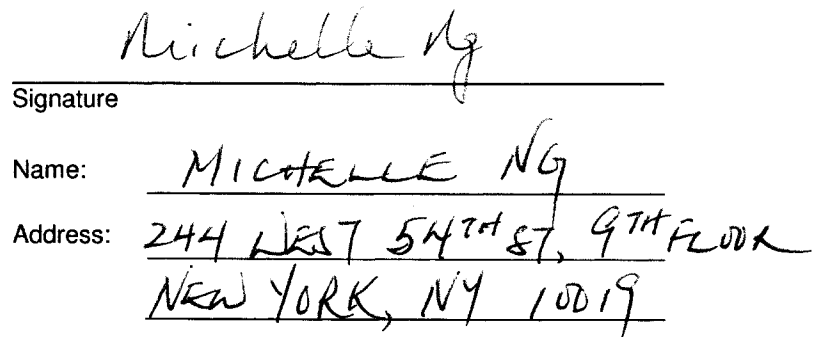 Michelle Ng
Signature
Name: MICHELLE NG
Address: 244 WEST 54TH ST, 9TH FLOOR
NEW YORK, NY 10019